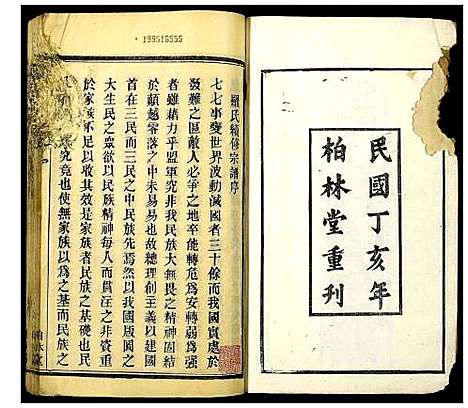 民國丁亥年
柏林堂重刊
199516555
羅氏續修宗譜序
七七事變世界波動減國者三十餘而我國實處於
聚難之區敵人必爭之地卒能轉危爲安轉弱爲強
者雖藉力乎盟軍究非我民族大無畏之精神固結
於顛越零落之中未易易也故總理創主義以建國
首在三民而三民之中民族先焉然以中國版圖之
民族之衆欲以其精神灌輸每人而貫注之非資重
於家族不足以收其效是家族者民族之基礎也民
究竟也使無家族以爲之基而民族之